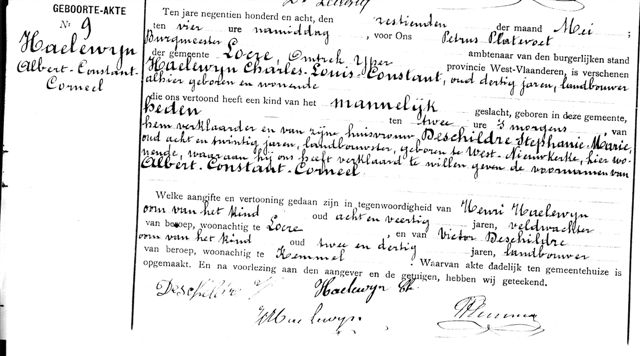 GEBOORTE-AKTE
Nr 9
Haelewyn
Albert-Constant-
Corneel
Ten jare negentien honderd en acht, den zestienden der maand Mei ;
ten vier ure namiddag, voor Ons Petrus Platevoet
Burgmeester ambtenaar van den burgerlijken stand
der gemeente Locre, Omtrek Yper provincie West-Vlaanderen, is verschenen
Haelewyn Charles-Louis-Constant, oud dertig jaren, landbouwer
alhier geboren en wonende
die ons vertoond heeft een kind van het mannelijk geslacht, geboren in deze gemeente,
heden ten twee ure 's morgens, van
hem verklaarder en van zijne huisvrouw Deschildre Stephanie-Marie,
oud acht en twintig jaren, landbouwster, geboren te West-Nieuwkerke, hier wo-
nende, waaraan hij ons heeft verklaard te willen geven de voornamen van
Albert-Constant-Corneel.
Welke aangifte en vertooning gedaan zijn in tegenwoordigheid van Henri Haelewyn
oom van het kind oud acht en veertig jaren, veldwachter
van beroep, woonachtig te Locre, en van Victor Deschildre
oom van het kind oud twee en dertig jaren, landbouwer
van beroep, woonachtig te Kemmel. Waarvan akte dadelijk ten gemeentehuize is
opgemaakt. En na voorlezing aan den aangever en de getuigen, hebben wij geteekend.
Deschildre V Haelewyn Ch.
H Haelewyn